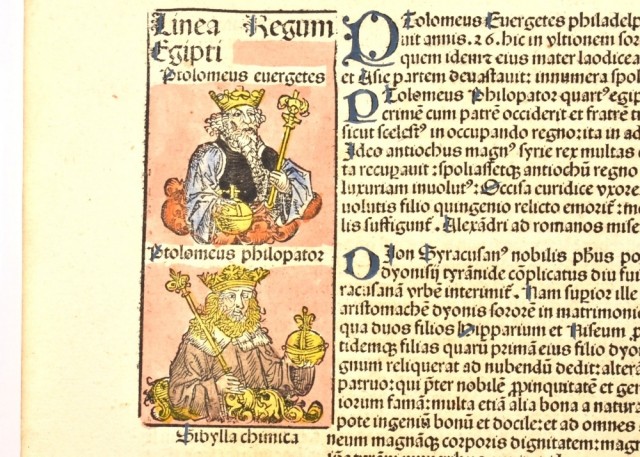 Linea Regum
Egipti
Ptolomeus euergetes
Ptolomeus philopator
Sibylla chimica
Ptolomeus Euergetes philadelp
uit annis. 26. hic in vltionem sor
quem idemꝛ eius mater laodicea
et Asie partem deuastauit: innumera spol
Ptolomeus Philopator quartꝰ egip
crimē cum patrē occiderit et fratrē
sicut scelestꝰ in occupando regno: ita in ad
Ideo antiochus magnꝰ syrie rex multas
ta recuꝑauit: spoliassetqꝫ antiochū regno
luxuriam inuolutꝰ: Occisa euridice vxore
uolutis filio quingenio relicto emorit̃: mo
lis suffigunt̃. Alexādri ad romanos mise
Dion Syracusanꝰ nobilis ph̃us
dyonisij tyrānide cōplicatus diu fui
racusanā vrbem interimit̃. Nam superior ille
aristomachē dyonis sororē in matrimoni
qua duos filios hipparium et Niseum
temqꝫ filias quarū primā eius filio dyo
gnum reliquerat ad nubendū dedit: alterā
patruo: qui p̃ter nobilē ꝓpinquitatē et
iorum famā: multa etiā alia bona a natura
pote ingeniū bonū et docile: et ad omnes
neum magnāqꝫ corporis dignitatem: mag